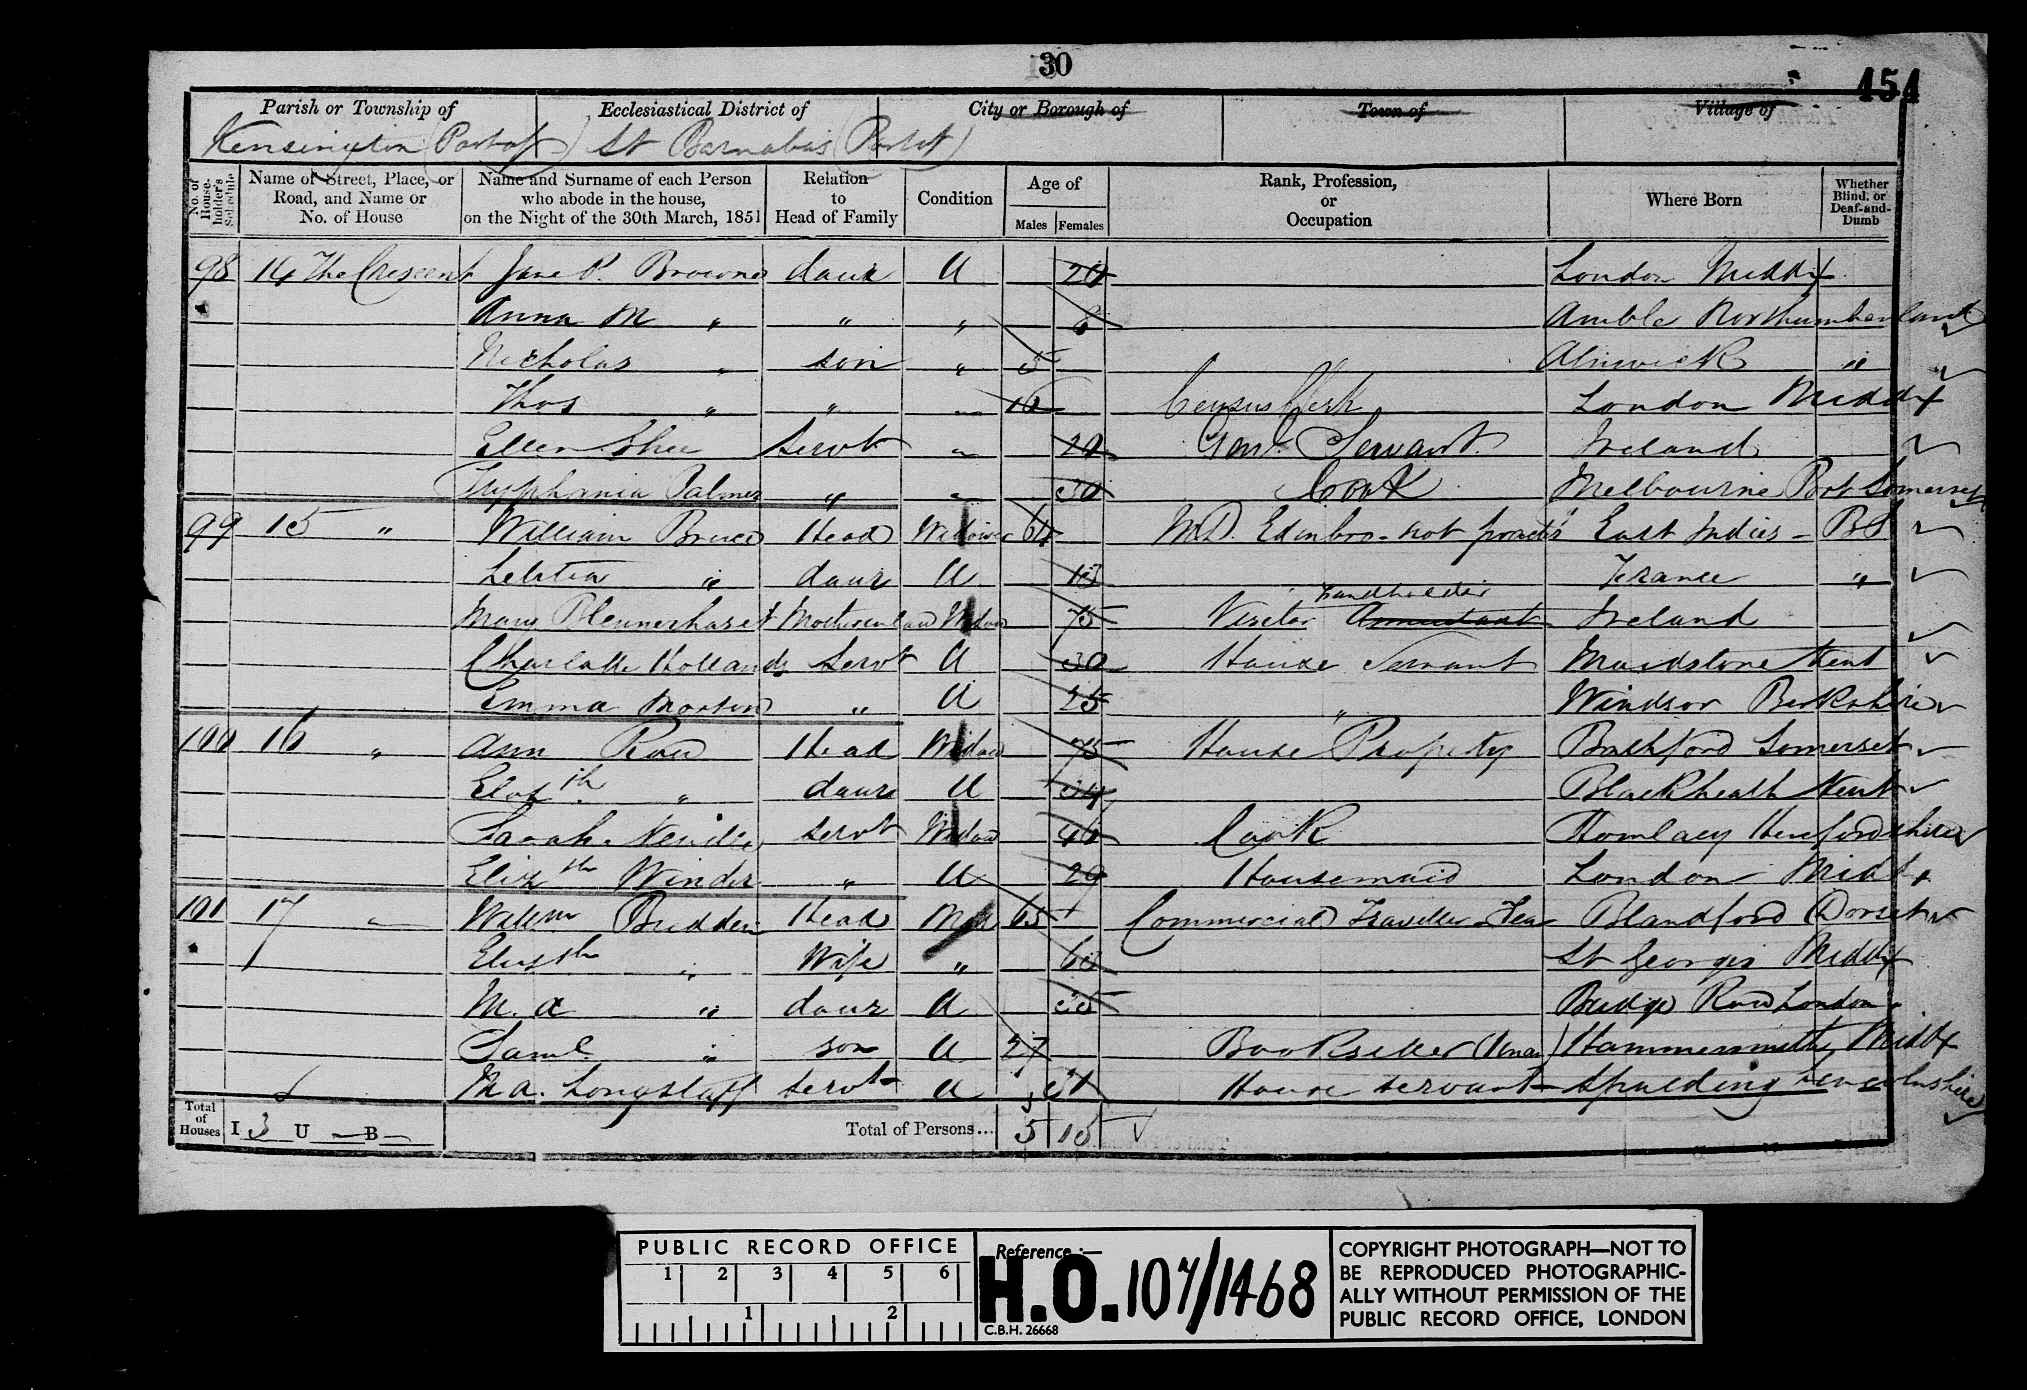 30
454
Parish or Township of Ecclesiastical District of City or Borough of Town of Village of
Kensington (Part of) St Barnabas (Part of)
No. of House-holder's Schedule
Name of Street, Place, or Road, and Name or No. of House
Name and Surname of each Person who abode in the house, on the Night of the 30th March, 1851
Relation to Head of Family
Condition
Age of
Males Females
Rank, Profession, or Occupation
Where Born
Whether Blind, or Deaf-and-Dumb
98 14 The Crescent Jane P. Browne daur U 20 London Middx
Anna M " " " 8 Amble Northumberland
Nicholas " son " 5 Alnwick "
Thos " " " 16 Census Clerk London Middx
Ellen Shee Servt " Genl Servant Ireland
Tryphenia Palmer " " 30 Cook Melbourne Port Somerset
99 15 " William Bruce Head Widower 64 M.D. Edinbro - not practg East Indies - BS
Letitia " daur U 13 France "
Mary Blennerhaset Motherinlaw Widow 75 Visitor Fundholder Annuitant Ireland
Charlotte Holland Servt U 30 House Servant Maidstone Kent
Emma Morten " U 25 " Windsor Berkshire
100 16 " Ann Row Head Widow 75 House Property Bashford Somerset
Elizth " daur U 34 Blackheath Kent
Sarah Neville servt Widow 46 Cook Homlacy Herefordshire
Elizth Winder " U 29 Housemaid London Middx
101 17 " Willm Budden Head Mar 65 Commercial Traveller Tea Blandford Dorset
Elizth " Wife " 63 St Georges Middx
M. A " daur U 35 Budge Row London
Saml " son U 27 Bookseller (Unem) Hammersmith Middx
M A. Longstaff servt U 31 House servant Spalding Lincolnshire
Total of Houses I 3 U — B — Total of Persons... 5 15
PUBLIC RECORD OFFICE
1 2 3 4 5 6
1 2
Reference :—
H.O. 107/1468
C.B.H. 26668
COPYRIGHT PHOTOGRAPH—NOT TO
BE REPRODUCED PHOTOGRAPHIC-
ALLY WITHOUT PERMISSION OF THE
PUBLIC RECORD OFFICE, LONDON